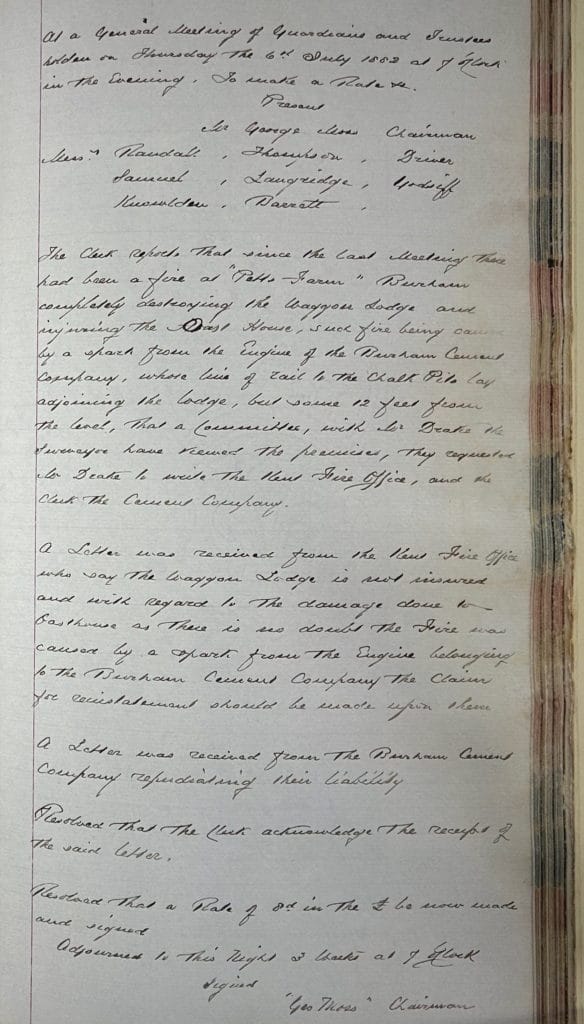 At a General Meeting of Guardians and Trustees
holden on Thursday the 6th July 1882 at 7 O'Clock
in the Evening. To make a Rate &c.
Present
Mr George Moss Chairman
Messrs Randall, Thompson, Driver
Samuel, Langridge, Godsiff
Knowlden, Barrett,
The Clerk reports that since the last Meeting there
had been a fire at "Petts Farm" Burham
completely destroying the Waggon Lodge and
injuring the Oast House, such fire being caused
by a spark from the Engine of the Burham Cement
Company, whose line of rail to the Chalk Pits lay
adjoining the lodge, but some 12 feet from
the level, that a Committee, with Mr Drake the
Surveyor have viewed the premises, they requested
Mr Drake to write the Kent Fire Office, and the
Clerk the Cement Company.
A Letter was received from the Kent Fire Office
who say the Waggon Lodge is not insured
and with regard to the damage done to
Oasthouse as there is no doubt the Fire was
caused by a spark from the Engine belonging
to the Burham Cement Company the Claim
for reinstatement should be made upon them
A Letter was received from the Burham Cement
Company repudiating their liability
Resolved that the Clerk acknowledge the receipt of
the said letter.
Resolved that a Rate of 8d in the £ be now made
and signed
Adjourned to this Night 3 Weeks at 7 O'Clock
Signed
"Geo Moss" Chairman